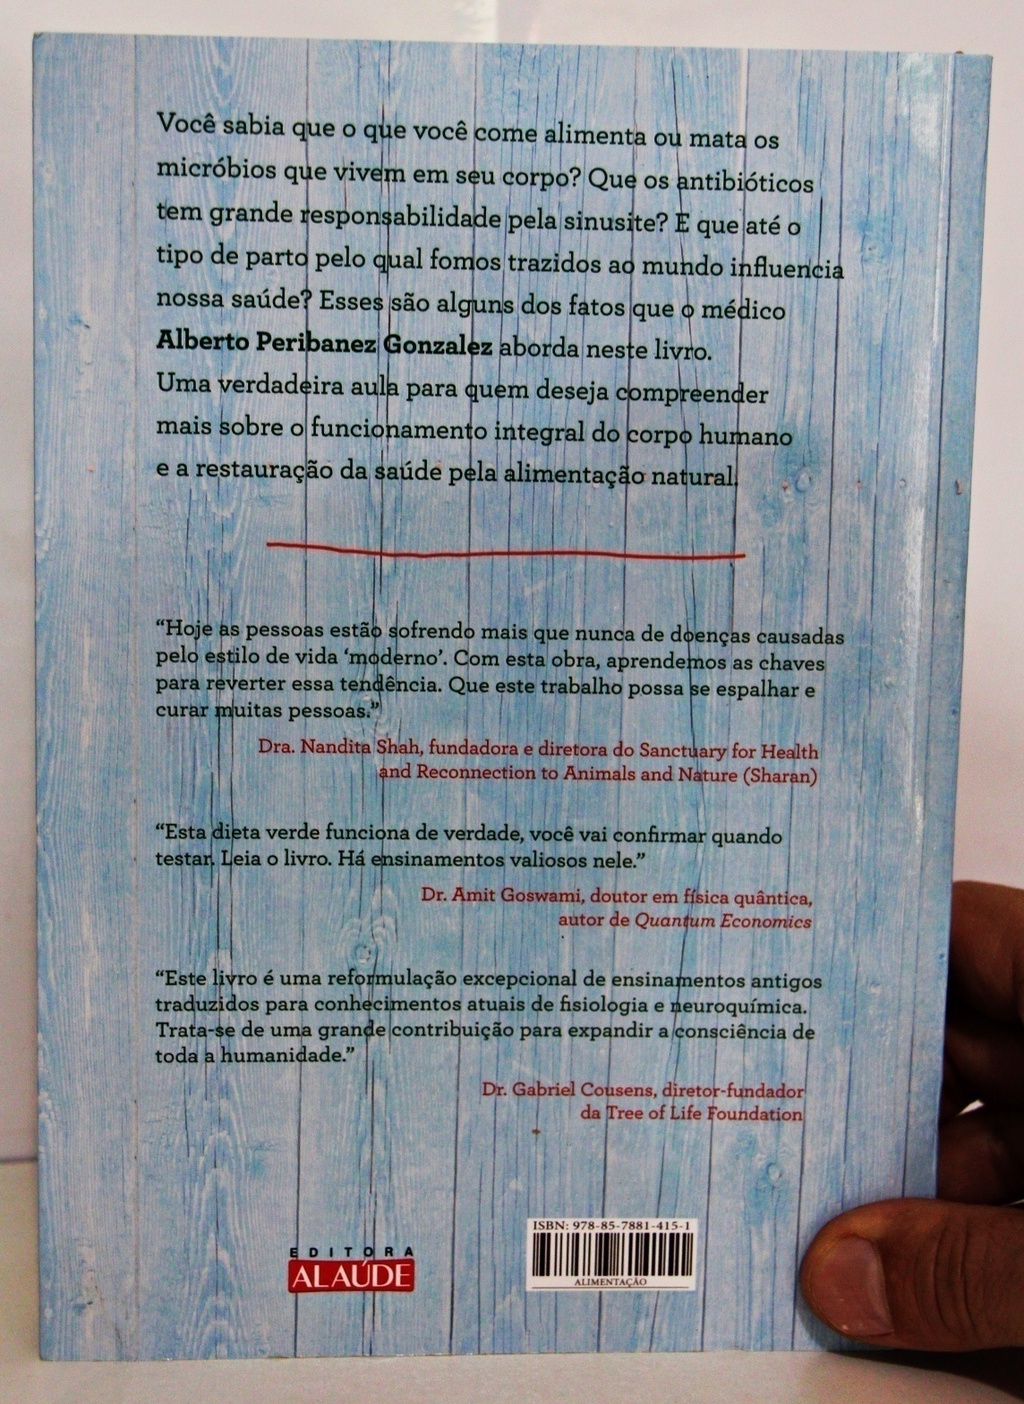 Você sabia que o que você come alimenta ou mata os
micróbios que vivem em seu corpo? Que os antibióticos
tem grande responsabilidade pela sinusite? E que até o
tipo de parto pelo qual fomos trazidos ao mundo influencia
nossa saúde? Esses são alguns dos fatos que o médico
Alberto Peribanez Gonzalez aborda neste livro.
Uma verdadeira aula para quem deseja compreender
mais sobre o funcionamento integral do corpo humano
e a restauração da saúde pela alimentação natural.
“Hoje as pessoas estão sofrendo mais que nunca de doenças causadas
pelo estilo de vida ‘moderno’. Com esta obra, aprendemos as chaves
para reverter essa tendência. Que este trabalho possa se espalhar e
curar muitas pessoas.”
Dra. Nandita Shah, fundadora e diretora do Sanctuary for Health
and Reconnection to Animals and Nature (Sharan)
“Esta dieta verde funciona de verdade, você vai confirmar quando
testar. Leia o livro. Há ensinamentos valiosos nele.”
Dr. Amit Goswami, doutor em física quântica,
autor de Quantum Economics
“Este livro é uma reformulação excepcional de ensinamentos antigos
traduzidos para conhecimentos atuais de fisiologia e neuroquímica.
Trata-se de uma grande contribuição para expandir a consciência de
toda a humanidade.”
Dr. Gabriel Cousens, diretor-fundador
da Tree of Life Foundation
EDITORA
ALAÚDE
ISBN: 978-85-7881-415-1
ALIMENTAÇÃO